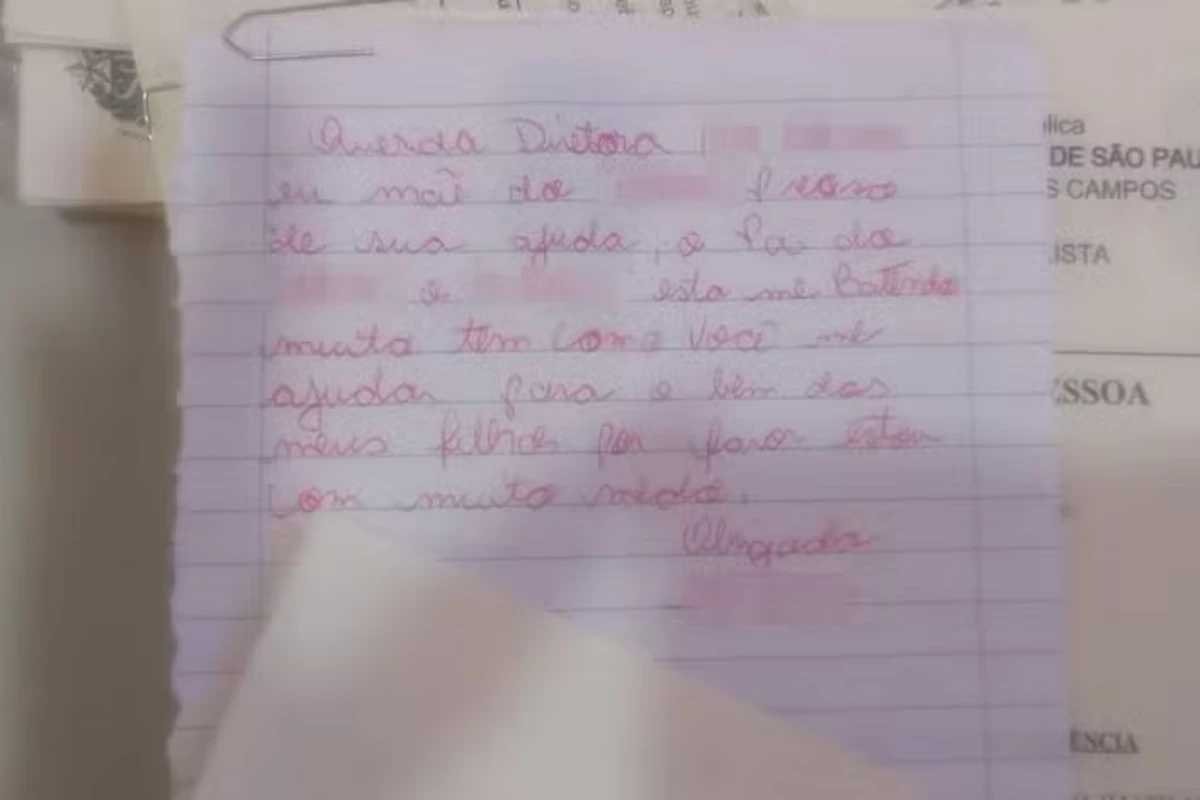 Querida Diretora
eu mãe do preciso
de sua ajuda, o Pai do
e esta me Batendo
muito tem como você me
ajudar para o bem dos
meus filhos por favor estou
com muito medo.
Obrigada
lica
DE SÃO PAU
S CAMPOS
ISTA
ESSOA
ÊNCIA